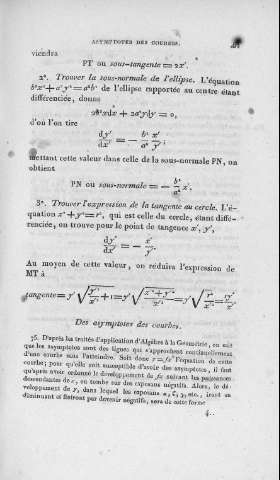 ASYMPTOTES DES COURBES.
viendra
PT ou sous-tangente = 2x'.
2°. Trouver la sous-normale de l'ellipse. L'équation
b²x² + a²y² = a²b² de l'ellipse rapportée au centre étant
différenciée, donne
2b²xdx + 2a²ydy = 0,
d'où l'on tire
dy'/dx' = − b²/a² x'/y' ;
mettant cette valeur dans celle de la sous-normale PN, on
obtient
PN ou sous-normale = − b²/a² x'.
3°. Trouver l'expression de la tangente au cercle. L'é-
quation x² + y² = r², qui est celle du cercle, étant diffé-
renciée, on trouve pour le point de tangence x', y',
dy'/dx' = − x'/y'.
Au moyen de cette valeur, on réduira l'expression de
MT à
tangente = y' √(y'²/x'² + 1) = y' √((x'² + y'²)/x'²) = y' √(r²/x'²) = ry'/x'.
Des asymptotes des courbes.
75. D'après les traités d'application d'Algèbre à la Géométrie, on sait
que les asymptotes sont des lignes qui s'approchent continuellement
d'une courbe sans l'atteindre. Soit donc y = fx l'équation de cette
courbe ; pour qu'elle soit susceptible d'avoir des asymptotes, il faut
qu'après avoir ordonné le développement de fx suivant les puissances
descendantes de x, on tombe sur des exposans négatifs. Alors, le dé-
veloppement de y, dans lequel les exposans α, ζ, γ, etc., iront en
diminuant et finiront par devenir négatifs, sera de cette forme
4..